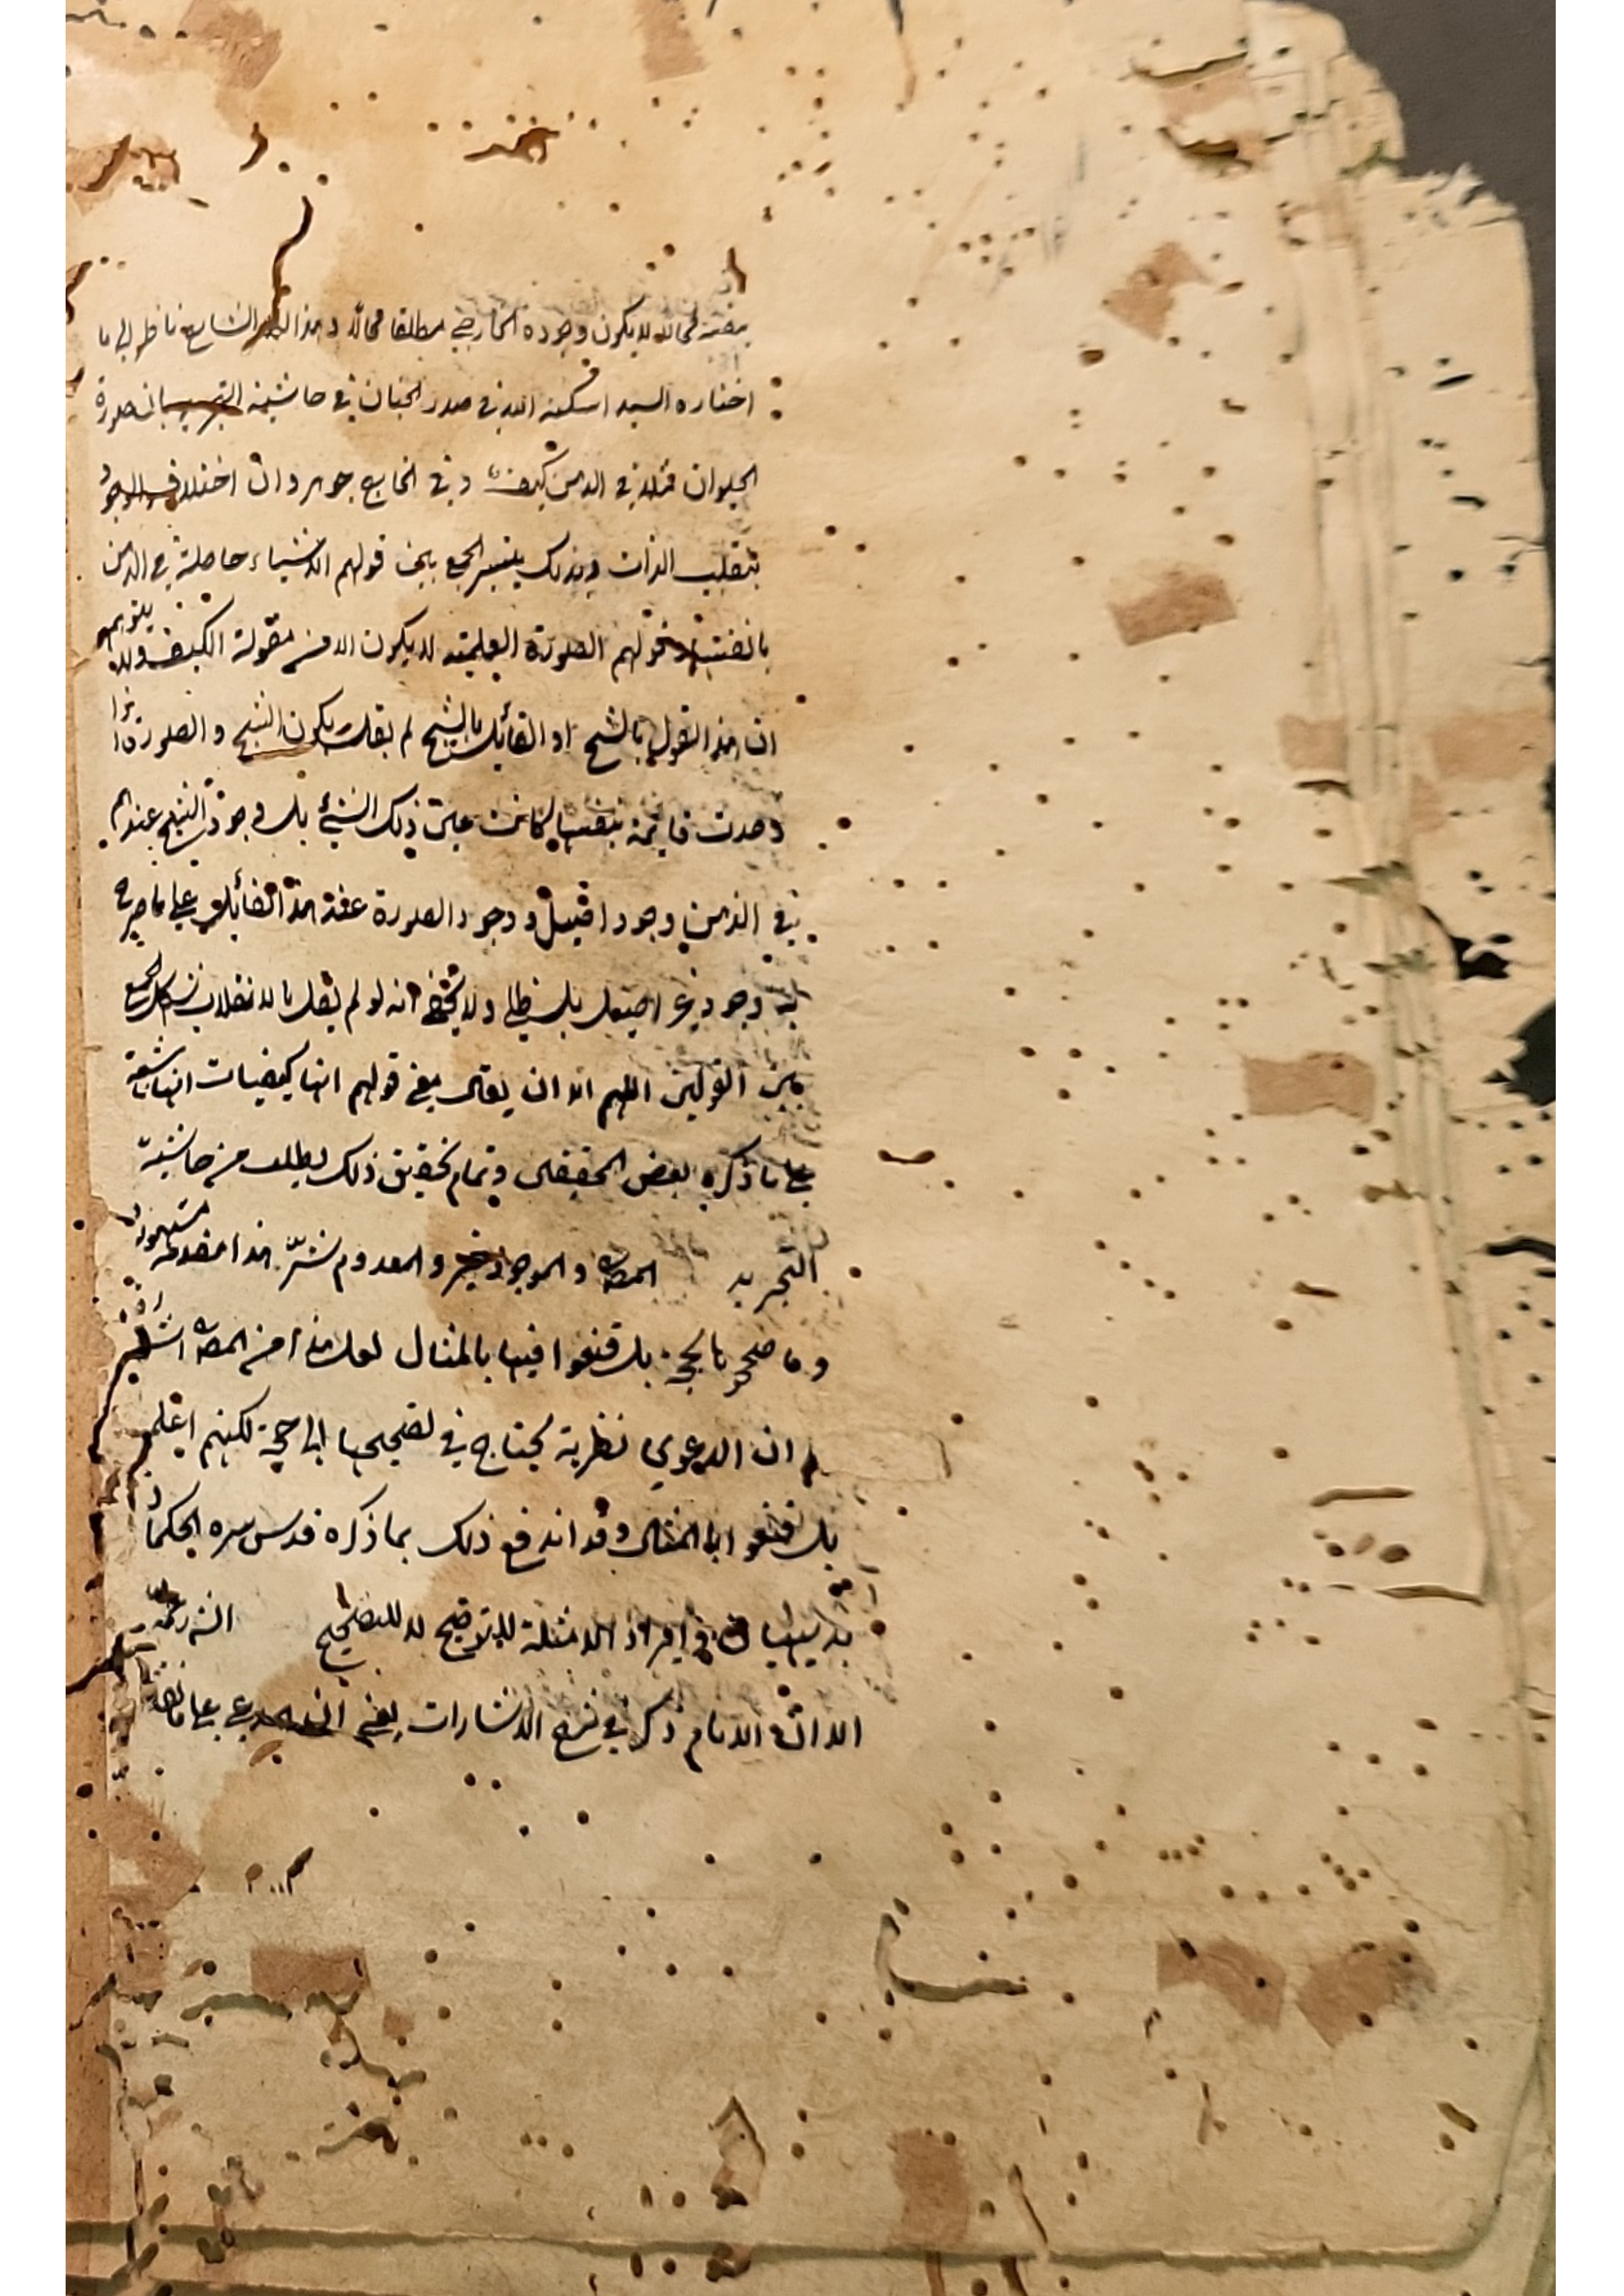 بنفسه محالا لا يكون وجوده الخارجي مطلقا محالا وهذا الشايع ناظر الى ما
اختاره السيد اسكنه الله في صدر الجنان في حاشيته التجريد بان صورة
الحيوان مثلا في الذهن كيف وفي الخارج جوهر وان اختلاف الوجود
بتقليب الذات وبذلك يتيسر الجمع بين قولهم الاشياء حاصلة في الذهن
بانفسها وقولهم الصورة العلمية لا يكون الا من مقولة الكيف ولا يتوهم
ان هذا القول بالشبح اذ القائل بالشبح لم يقل بكون الشبح والصورة اذا
وجدت قايمة بنفسها لكانت عين ذلك الشيئ بل وجود الشبح عندهم
في الذهن وجود اصيل ووجود الصورة عند هذا القائل على ما صرح
به وجود غير اصيل بل ظلي ولا يخفى انه لو لم يقل بالانقلاب يشكل الجمع
بين القولين اللهم الا ان يقال معنى قولهم انها كيفيات انها شبيهة
على ما ذكره بعض المحققين وتمام تحقيق ذلك يطلب من حاشية
التجريد المص والموجود خير والمعدوم شر هذا مقدمة مشهورة
وما صححوها بحجة بل قنعوا فيها بالمثال لعل هذا من المص اشارة
ان الدعوى نظرية يحتاج في تصحيحها الى حجة لكنهم
بل قنعوا بالمثال وقد اندفع ذلك بما ذكره قدس سره الحكماء
بديهيا في ايراد الامثلة للتوضيح لا للتصحيح الش رحمه
الا ان الامام ذكر في شرح الاشارات يعني ان المدعي على ما